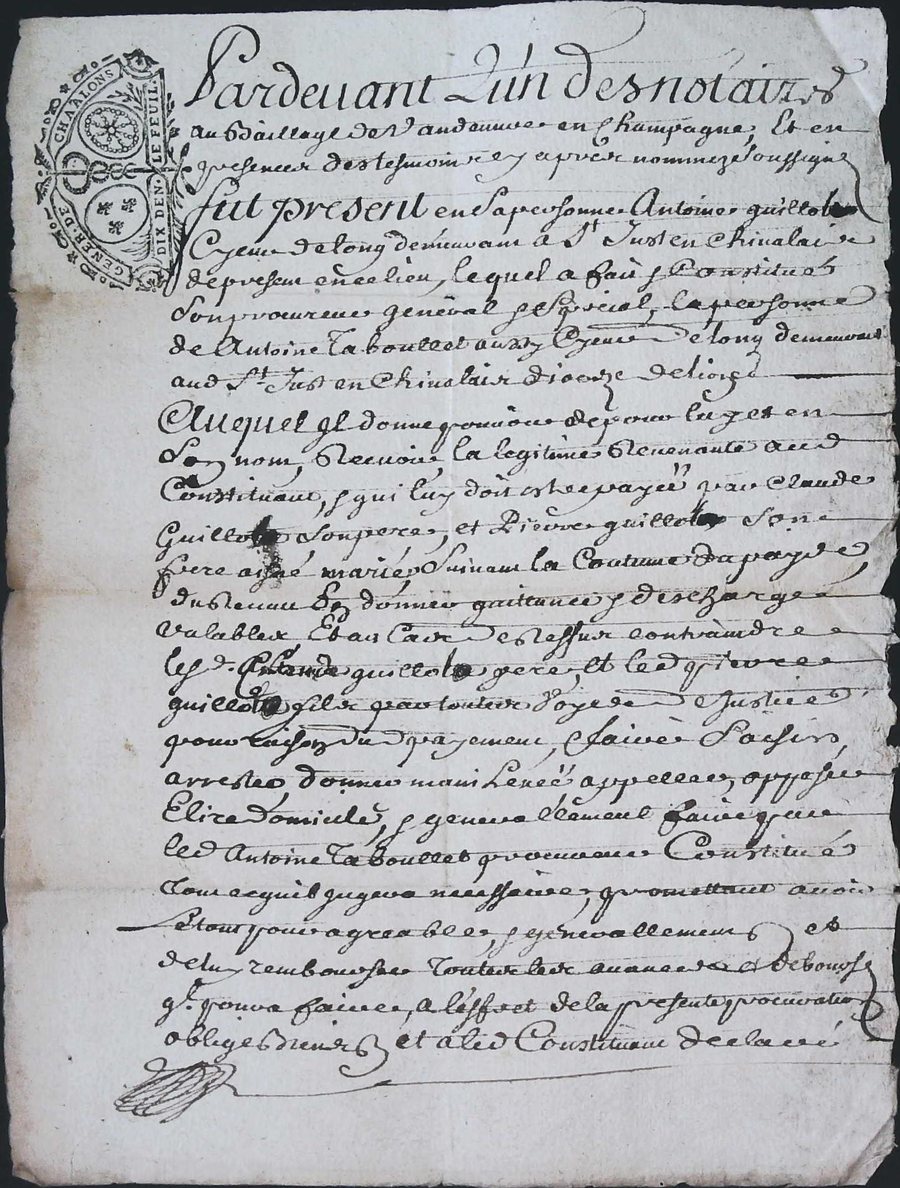 GENER. DE CHAALONS
DIX DEN. LE FEUIL.
Pardevant L'un des notaires
au Bailliage de Vandeuvre en Champagne, Et en
presence des tesmoins cy apres nommez soussignez
fut present en sa personne Antoine guillot
Cyeur de long demeurant a St. Just en Chivalair
de present en ce lieu, lequel a fait & Constitué
Son procureur general & special, la personne
de Antoine Taboullet aussy Cyeur de long demeurant
aud St. Just en Chivalair dioceze de
Auquel jl donne pouvoir de pour luy et en
Son nom, Recevoir la legitime Revenante aud
Constituant, & qui luy doit estre payée par Claude
Guillot Son pere, et Pierre guillot Son
frere aisné marié, Suivant la Coutume du pays de
du Receu En donner quittance & descharge
valables Et au Cas de Reffus contraindre
lesd. Claude guillot pere, et led pierre
guillot fils par toutes Voyes de Justice
pour raison du payement, faire Saisir,
arrester, donner main Levée appeller, opposer
Elire domicile, & generallement faire par
led Antoine Taboullet procureur Constitué
tout ce qu'il jugera necessaire, promettant avoir
Le tout pour agreable, & generallement et
de luy rembourser toutes les avances & debourse
qt. poura faire, a l'effet de la presente procuration
obliger biens et a led Constituant declaré